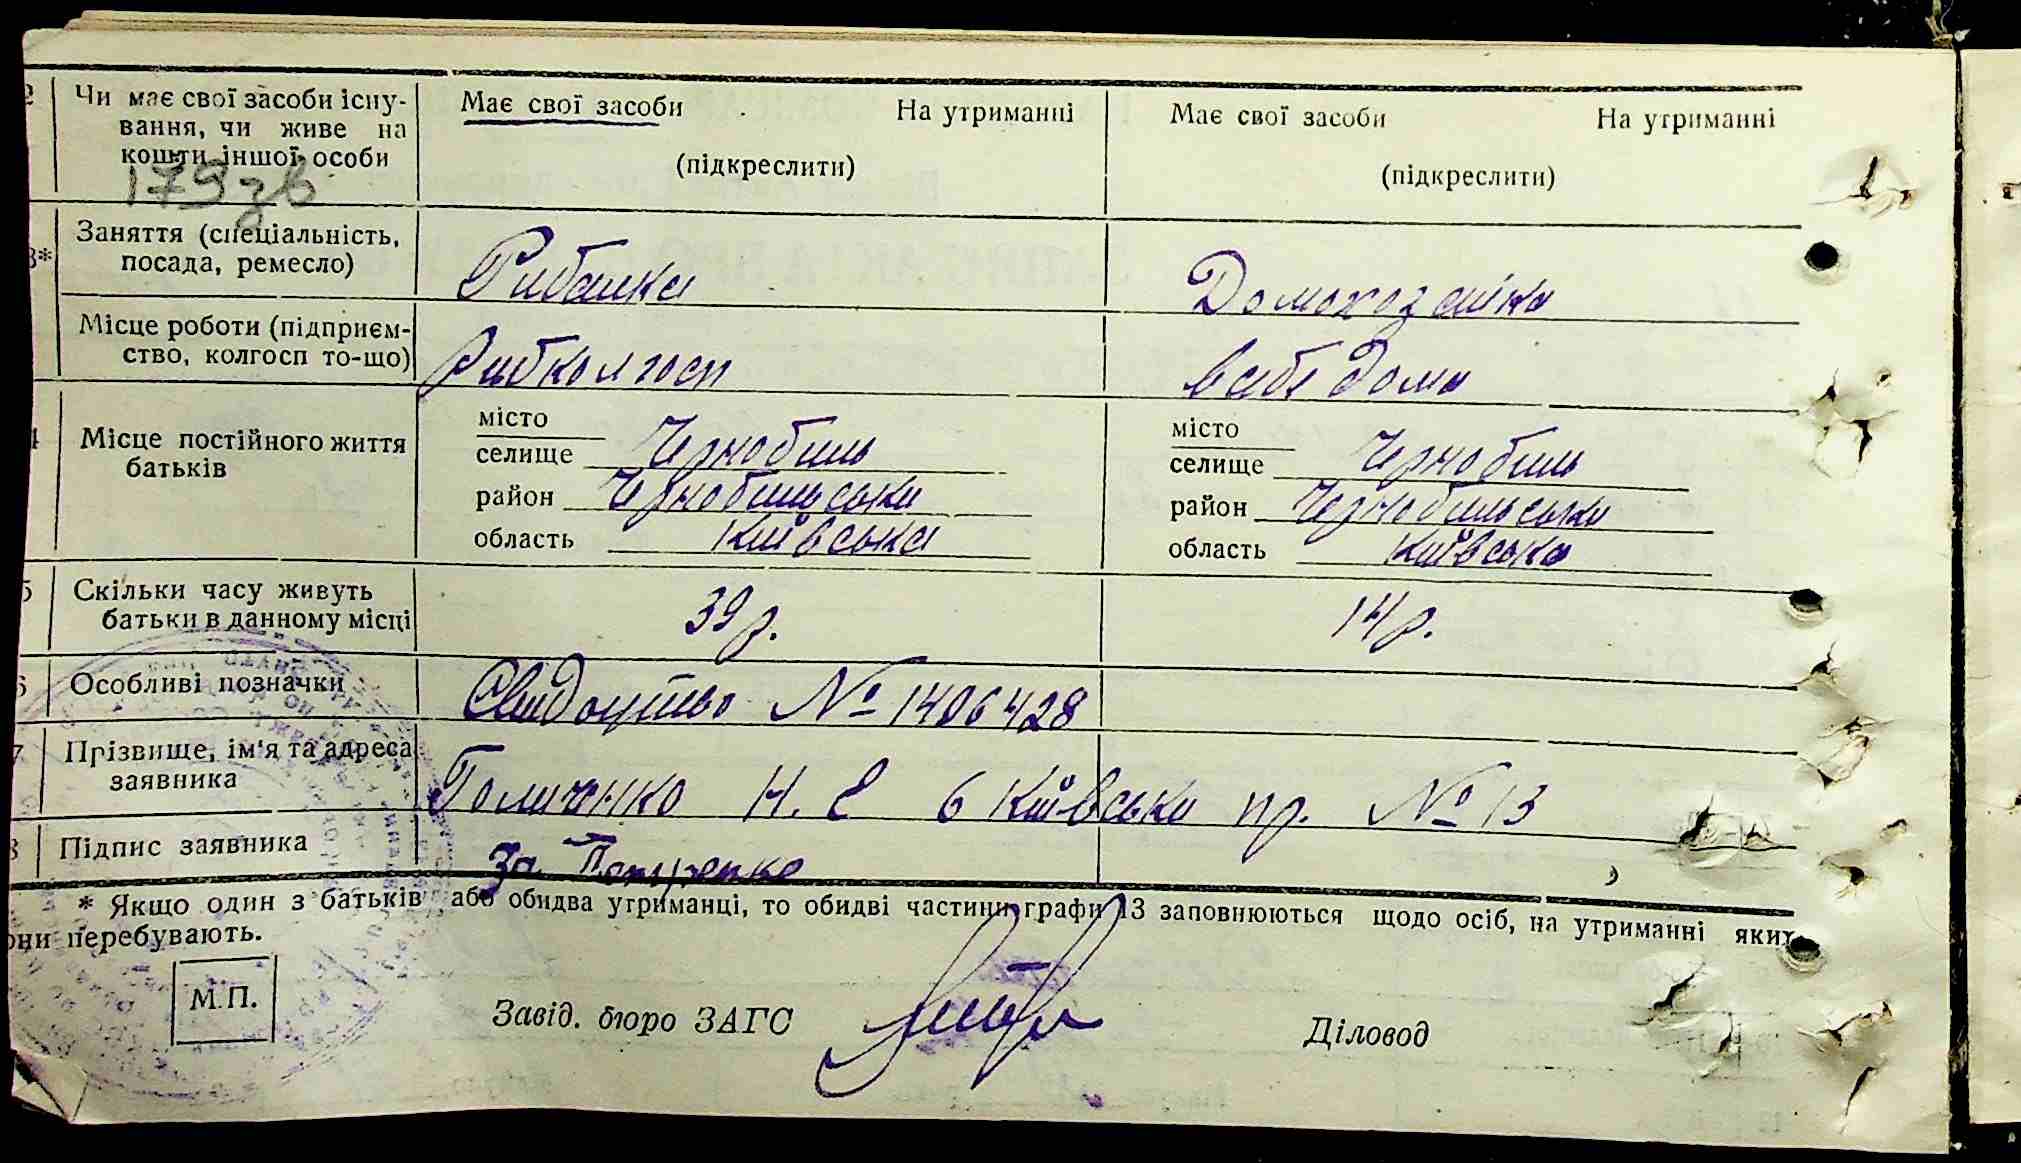 2 Чи має свої засоби існу- Має свої засоби На утриманні Має свої засоби На утриманні
вання, чи живе на
кошти іншої особи (підкреслити) (підкреслити)
179зв
3* Заняття (спеціальність, Рибалка Домохозяйка
посада, ремесло)
Місце роботи (підприєм- Рибколгосп в себе дома
ство, колгосп то-що)
4 Місце постійного життя місто місто
батьків селище Чернобиль селище Чернобиль
район Чернобильськи район Чернобильськи
область Київська область Київська
5 Скільки часу живуть 39 р. 14 р.
батьки в данному місці
6 Особливі позначки Свидоцтво № 1406428
7 Прізвище, ім'я та адреса Н. Е Київська пр. № 13
заявника
8 Підпис заявника За
* Якщо один з батьків або обидва утриманці, то обидві частини графи 13 заповнюються щодо осіб, на утриманні яких
они перебувають.
М.П. Завід. бюро ЗАГС Діловод